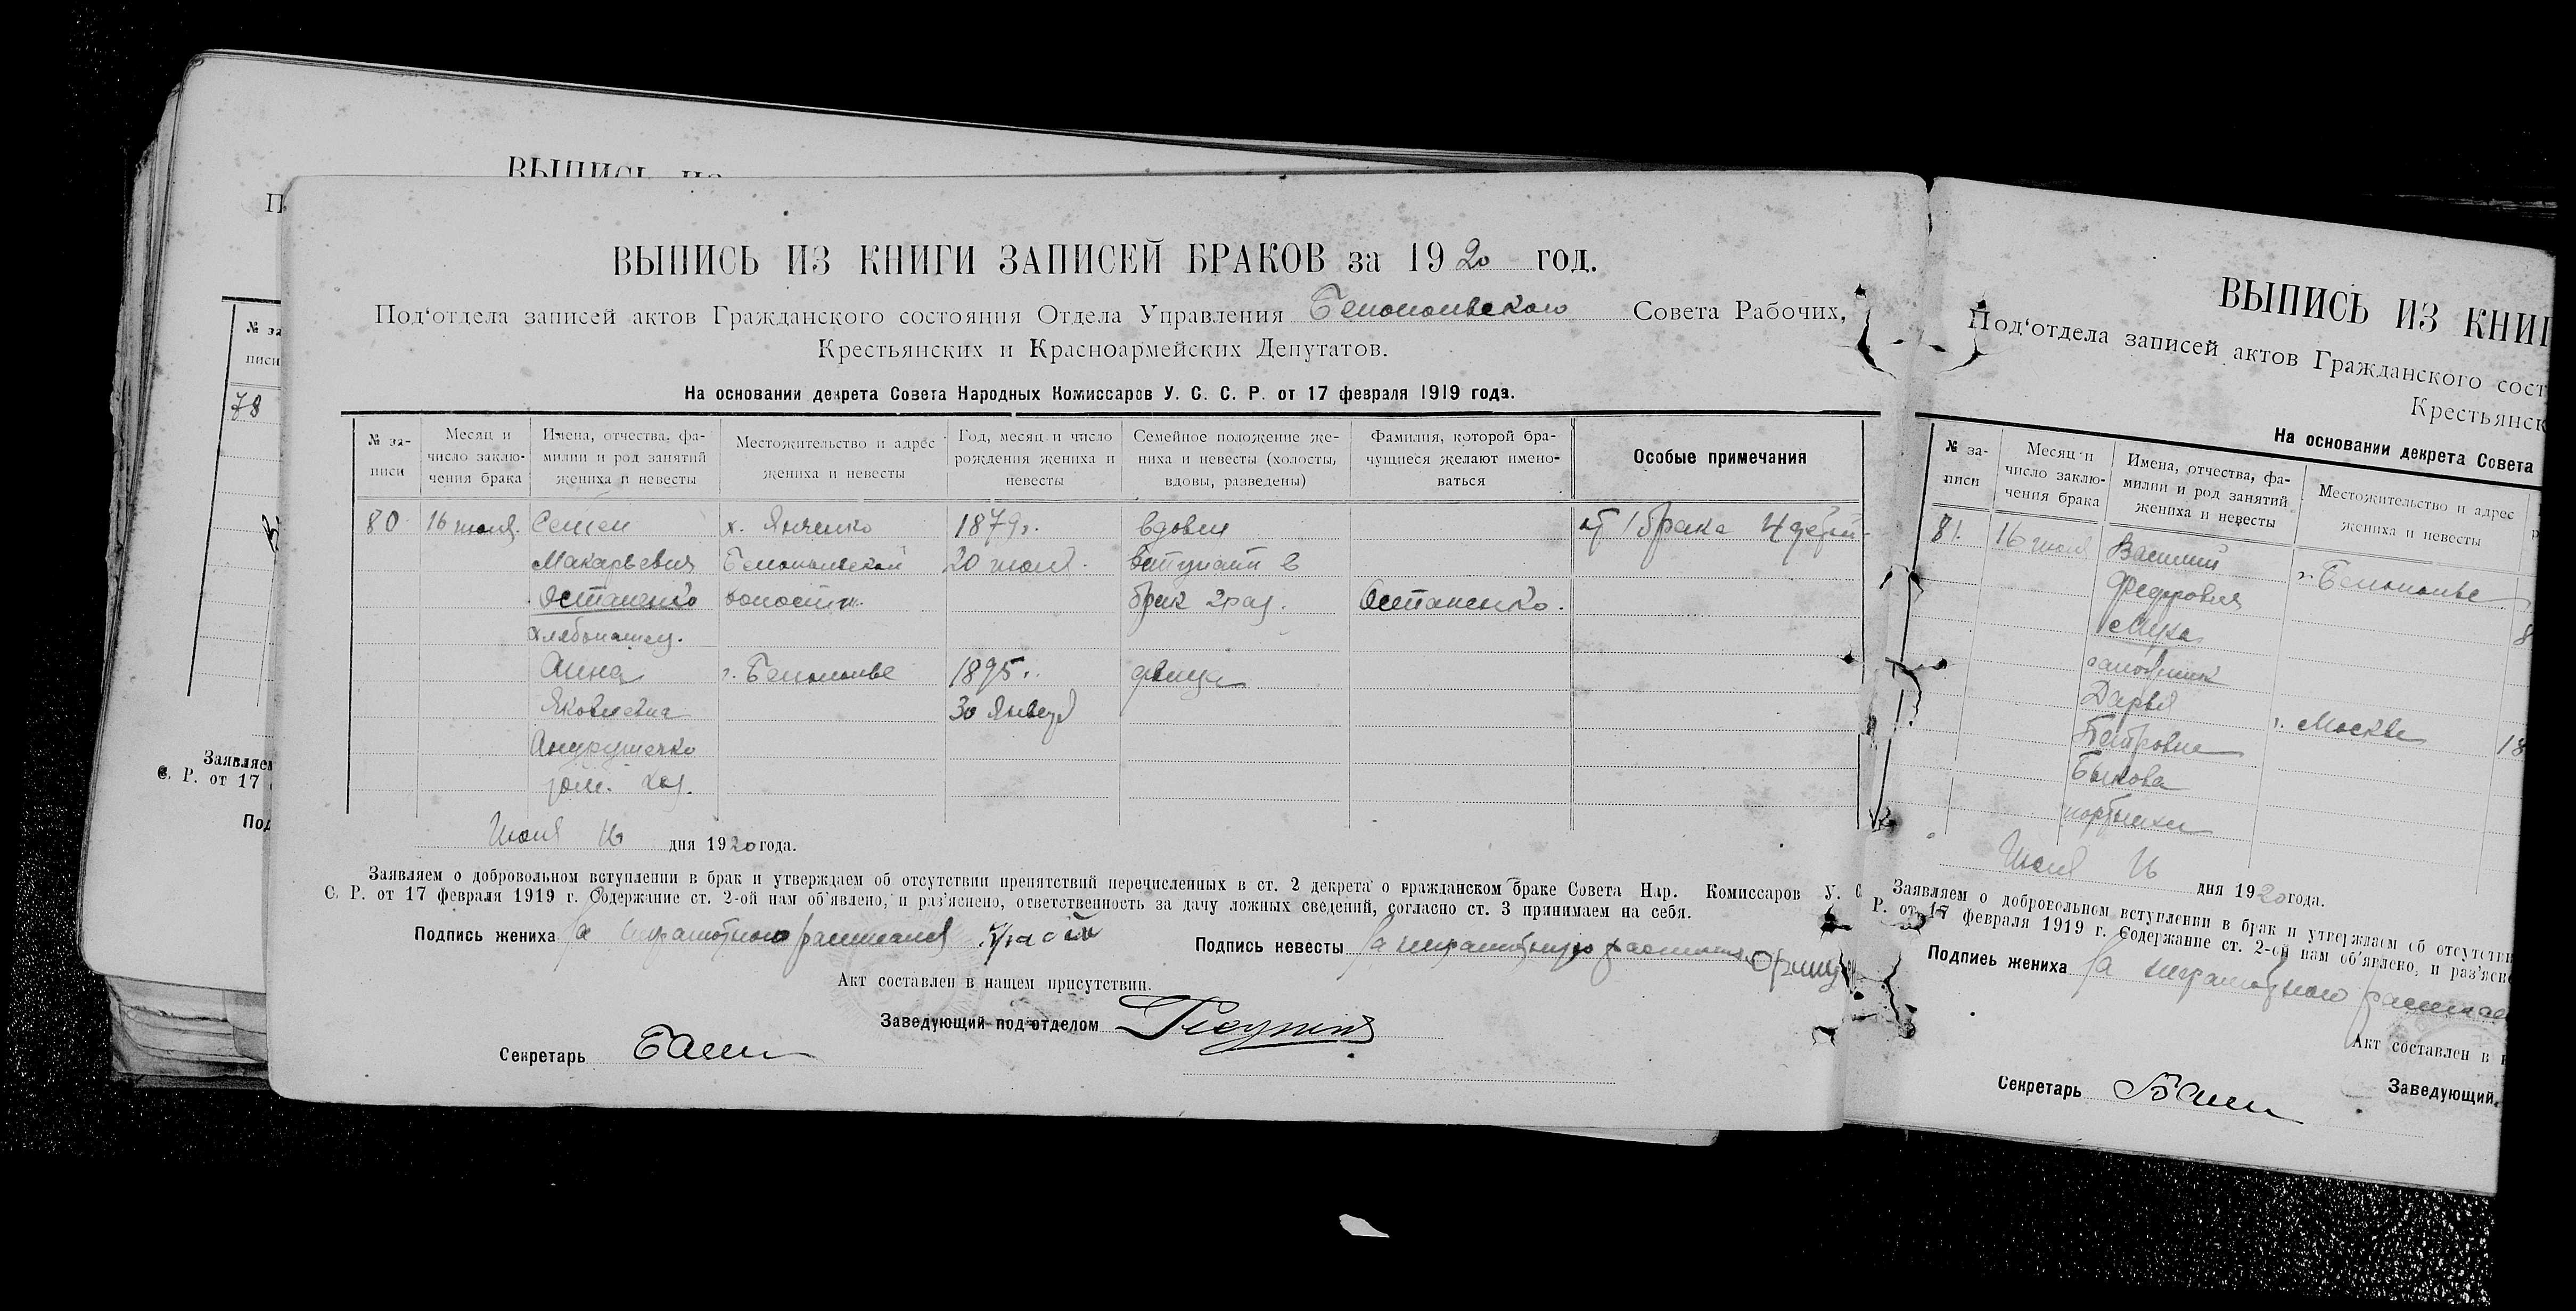 ВЫПИСЬ ИЗ КНИГИ ЗАПИСЕЙ БРАКОВ за 1920 год.
Под'отдела записей актов Гражданского состояния Отдела Управления Белопольского Совета Рабочих,
Крестьянских и Красноармейских Депутатов.
На основании декрета Совета Народных Комиссаров У. С. С. Р. от 17 февраля 1919 года.
№ за-
писи
Месяц и
число заклю-
чения брака
Имена, отчества, фа-
милии и род занятий
жениха и невесты
Местожительство и адрес
жениха и невесты
Год, месяц и число
рождения жениха и
невесты
Семейное положение же-
ниха и невесты (холосты,
вдовы, разведены)
Фамилия, которой бра-
чущиеся желают имено-
ваться
Особые примечания
80
16 июля
Семен
Макарьевич
Остапенко
хлебопашец.
Анна
Яковлевна
дом. хоз.
х. Янченко
Белопольской
волости.
г. Белополье
1879г.
20 июля.
1895г.
30 Января
вдовец
вступает в
брак 2 раз.
девица
Остапенко.
от 1 брака 4 детей
Июля 16 дня 1920 года.
Заявляем о добровольном вступлении в брак и утверждаем об отсутствии препятствий перечисленных в ст. 2 декрета о гражданском браке Совета Нар. Комиссаров У. С.
С. Р. от 17 февраля 1919 г. Содержание ст. 2-ой нам об'явлено, и раз'яснено, ответственность за дачу ложных сведений, согласно ст. 3 принимаем на себя.
Подпись жениха За неграмотного расписался
Подпись невесты За неграмотную расписался
Акт составлен в нащем присутствии.
Заведующий под'отделом
Секретарь
ВЫПИСЬ ИЗ КНИГ
Под'отдела записей актов Гражданского сост
Крестьянск
На основании декрета Совета
№ за-
писи
Месяц и
число заклю-
чения брака
Имена, отчества, фа-
милии и род занятий
жениха и невесты
Местожительство и адрес
жениха и невесты
81.
16 июля
Василий
Федорович
Муха
сапожник
Дарья
Петровна
Быкова
портниха
г. Белополье
г. Москва
8
18
Июля 16 дня 1920 года.
Заявляем о добровольном вступлении в брак и утверждаем об отсутстви
Р. от 17 февраля 1919 г. Содержание ст. 2-ой нам об'явлено, и раз'ясн
Подпись жениха За неграмотного расписал
Акт составлен в
Заведующий
Секретарь
ВЫПИСЬ
П
№ за
писи
78
Заявляем
С. Р. от 17
Под